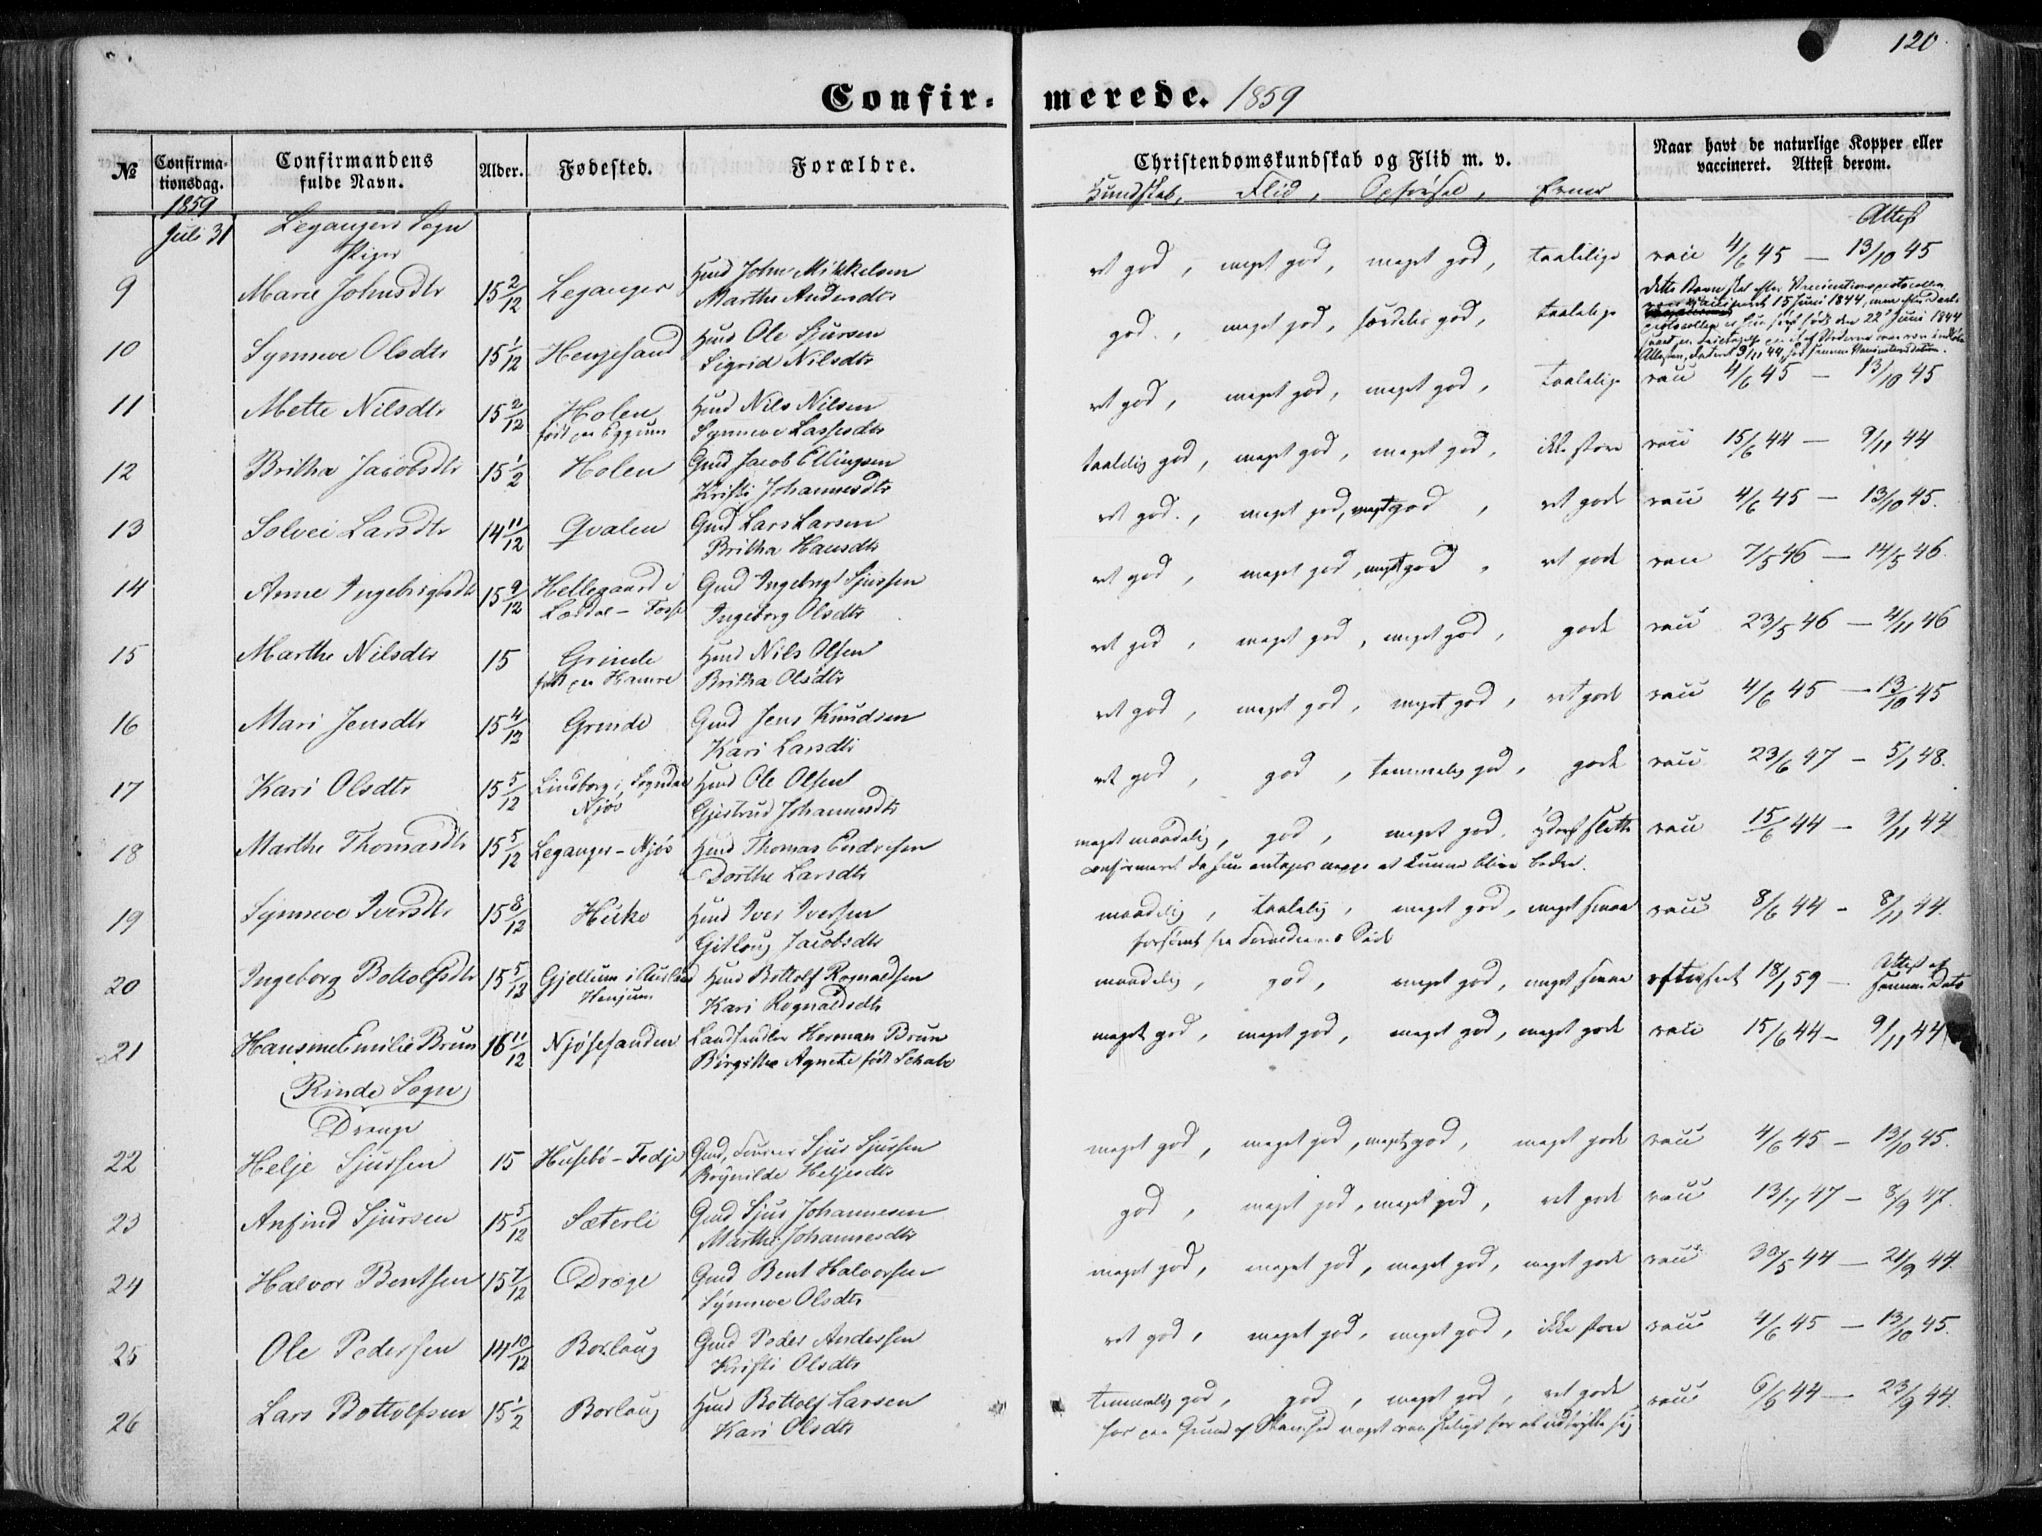 120
Confirmerede. 1859
№ Confirmationsdag. Confirmandens fulde Navn. Alder. Fødested. Forældre. Christendomskundskab og Flid m. v. Naar havt de naturlige Kopper eller vaccineret. Attest derom.
Kundskab, Flid, Opførsel, Evner
1859
Juli 31 Leganger Sogn
Piger
Attest
9 Marie Johnsdtr 15 2/12 Leganger Hmd John Mikkelsen
Marthe Andersdtr
ret god, meget god, meget god, taalelige vacc 4/6 45 — 13/10 45
10 Synneve Olsdtr 15 1/12 Henjesand Hmd Ole Sjursen
Sigrid Nilsdtr
god, meget god, særdeles god, taalelige
15 Juni 1844, den 22 Juni 1844
11 Mette Nilsdtr 15 2/12 Holen Hmd Nils Nilsen
født paa Eggum Synneve Lassesdtr
ret god, meget god, meget god, taalelige vacc 4/6 45 — 13/10 45
12 Britha Jacobsdtr 15 1/2 Holen Gmd Jacob Ellingsen
Kristi Johannesdtr
taalelig god, meget god, meget god, ikke store vacc 15/6 44 — 9/11 44
13 Solvei Larsdtr 14 11/12 Qvalen Gmd Lars Larsen
Britha Hansdtr
ret god, meget god, meget god, ret gode vacc 4/6 45 — 13/10 45.
14 Anne Ingebrigtsdtr 15 9/12 Hellegaard i Gmd Ingebrigt Sjursen
Lærdal — Ingeborg Olsdtr
ret god, meget god, meget god, ret gode vacc 7/5 46 — 14/5 46.
15 Marthe Nilsdtr 15 Grinde Hmd Nils Olsen
født paa Hamre Britha Olsdtr
ret god, meget god, meget god, gode vacc 23/5 46 — 4/11 46
16 Mari Jensdtr 15 4/12 Grinde Gmd Jens Knudsen
Kari Larsdtr
ret god, meget god, meget god, ret gode vacc 4/6 45 — 13/10 45
17 Kari Olsdtr 15 5/12 Lindborg i Sogndal Hmd Ole Olsen
Njøs Gjertrud Johannesdtr
ret god, god, temmelig god, gode vacc 23/6 47 — 5/1 48.
18 Marthe Thomasdtr 15 5/12 Leganger — Njøs Hmd Thomas Endresen
Dorthe Larsdtr
meget maadelig, god, meget god, yderst slette vacc 15/6 44 — 9/11 44
confirmeret da hun antages neppe at kunne blive bedre.
19 Synneve Iversdtr 15 8/12 Huke Hmd Iver Iversen
Gitloug Jacobsdtr
maadelig, taalelig, meget god, meget smaa vacc 8/6 44 — 8/11 44.
forsømt fra Forældrenes Side
20 Ingeborg Bottolfsdtr 15 5/12 Gjellum i Aurland Hmd Bottolf Rognaldsen
Henjum Kari Rognaldsdtr
maadelig, god, meget god, meget smaa 18/1 59 — Attest af samme Dato
21 Hansine Emilie Brun 16 11/12 Njøsesanden Landhandler Herman Brun
Birgitha Agnete født Schale
meget god, meget god, meget god, meget gode vacc 15/6 44 — 9/11 44
Rinde Sogn
Drenge
22 Helje Sjursen 15 Husebø — Fedje Gmd, Sjur Sjursen
Røgnilde Heljesdtr
meget god, meget god, meget god, meget gode vacc 4/6 45 — 13/10 45.
23 Anfind Sjursen 15 5/12 Sæterli Gmd Sjur Johannesen
Marthe Johannesdtr
god, meget god, meget god, ret gode vacc 13/7 47 — 8/9 47.
24 Halvor Bentsen 15 7/12 Drøge Gmd Bent Halvorsen
Synneve Olsdtr
meget god, meget god, meget god, meget gode vacc 30/5 44 — 21/9 44.
25 Ole Pedersen 14 10/12 Borlaug Gmd Peder Andersen
Kristi Olsdtr
ret god, meget god, meget god, ikke store vacc 4/6 45 — 13/10 45.
26 Lars Bottolfsen 15 1/2 Borlaug Hmd Bottolf Larsen
Kari Olsdtr
temmelig god, god, meget god, ret gode vacc 6/6 44 — 23/9 44.
har paa Grund af Stamhed noget vanskeligt for at udtrykke sig